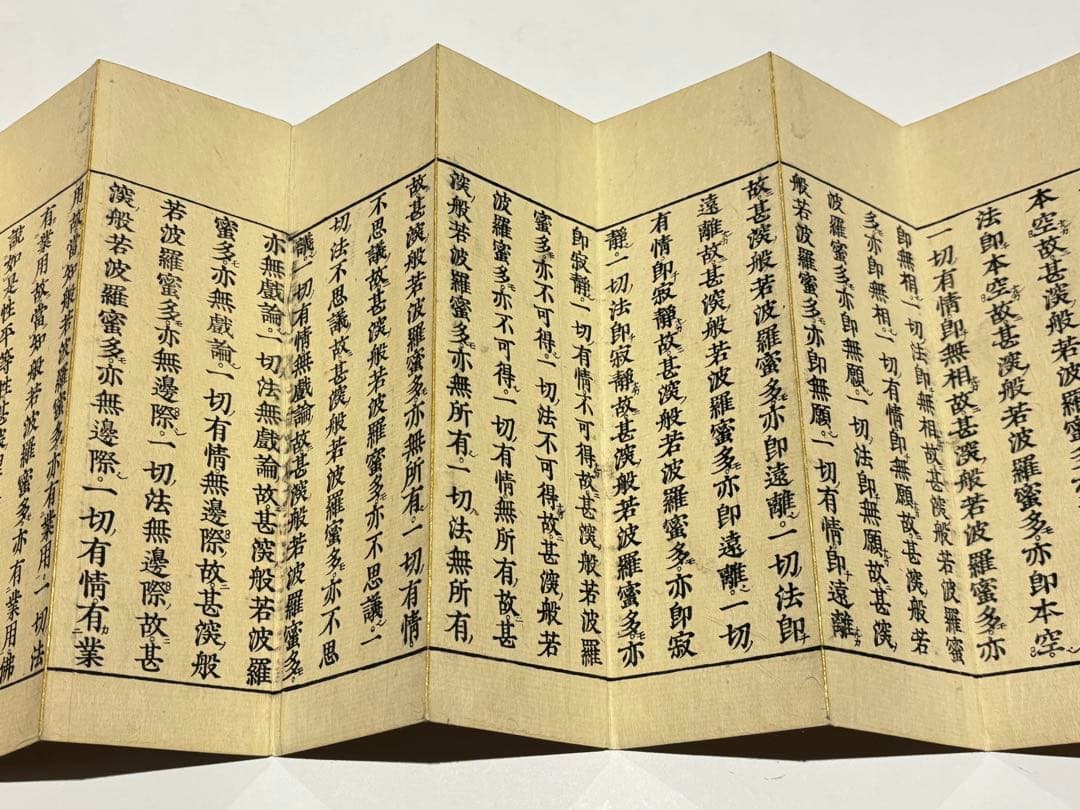 本空。故甚深般若波羅蜜多。
法即本空。故甚深般若波羅蜜多。亦即本空。
一切有情即無相。故甚深般若波羅蜜多。亦
即無相。一切法即無相。故甚深般若波羅蜜
多。亦即無相。一切有情即無願。故甚深般若
波羅蜜多。亦即無願。一切法即無願。故甚深
般若波羅蜜多。亦即無願。一切有情即遠離。
故甚深般若波羅蜜多。亦即遠離。一切法即
遠離。故甚深般若波羅蜜多。亦即遠離。一切
有情即寂靜。故甚深般若波羅蜜多。亦即寂
靜。一切法即寂靜。故甚深般若波羅蜜多。亦
即寂靜。一切有情不可得。故甚深般若波羅
蜜多。亦不可得。一切法不可得。故甚深般若
波羅蜜多。亦不可得。一切有情無所有。故甚
深般若波羅蜜多。亦無所有。一切法無所有。
故甚深般若波羅蜜多。亦無所有。一切有情
不思議。故甚深般若波羅蜜多。亦不思議。一
切法不思議。故甚深般若波羅蜜多。亦不思
議。一切有情無戲論。故甚深般若波羅蜜多。
亦無戲論。一切法無戲論。故甚深般若波羅
蜜多。亦無戲論。一切有情無邊際。故甚深般
若波羅蜜多。亦無邊際。一切法無邊際。故甚
深般若波羅蜜多。亦無邊際。一切有情有業
用。故當知般若波羅蜜多。亦有業用。一切法
有業用。故當知般若波羅蜜多。亦有業用。佛
說如是性平等性甚深理